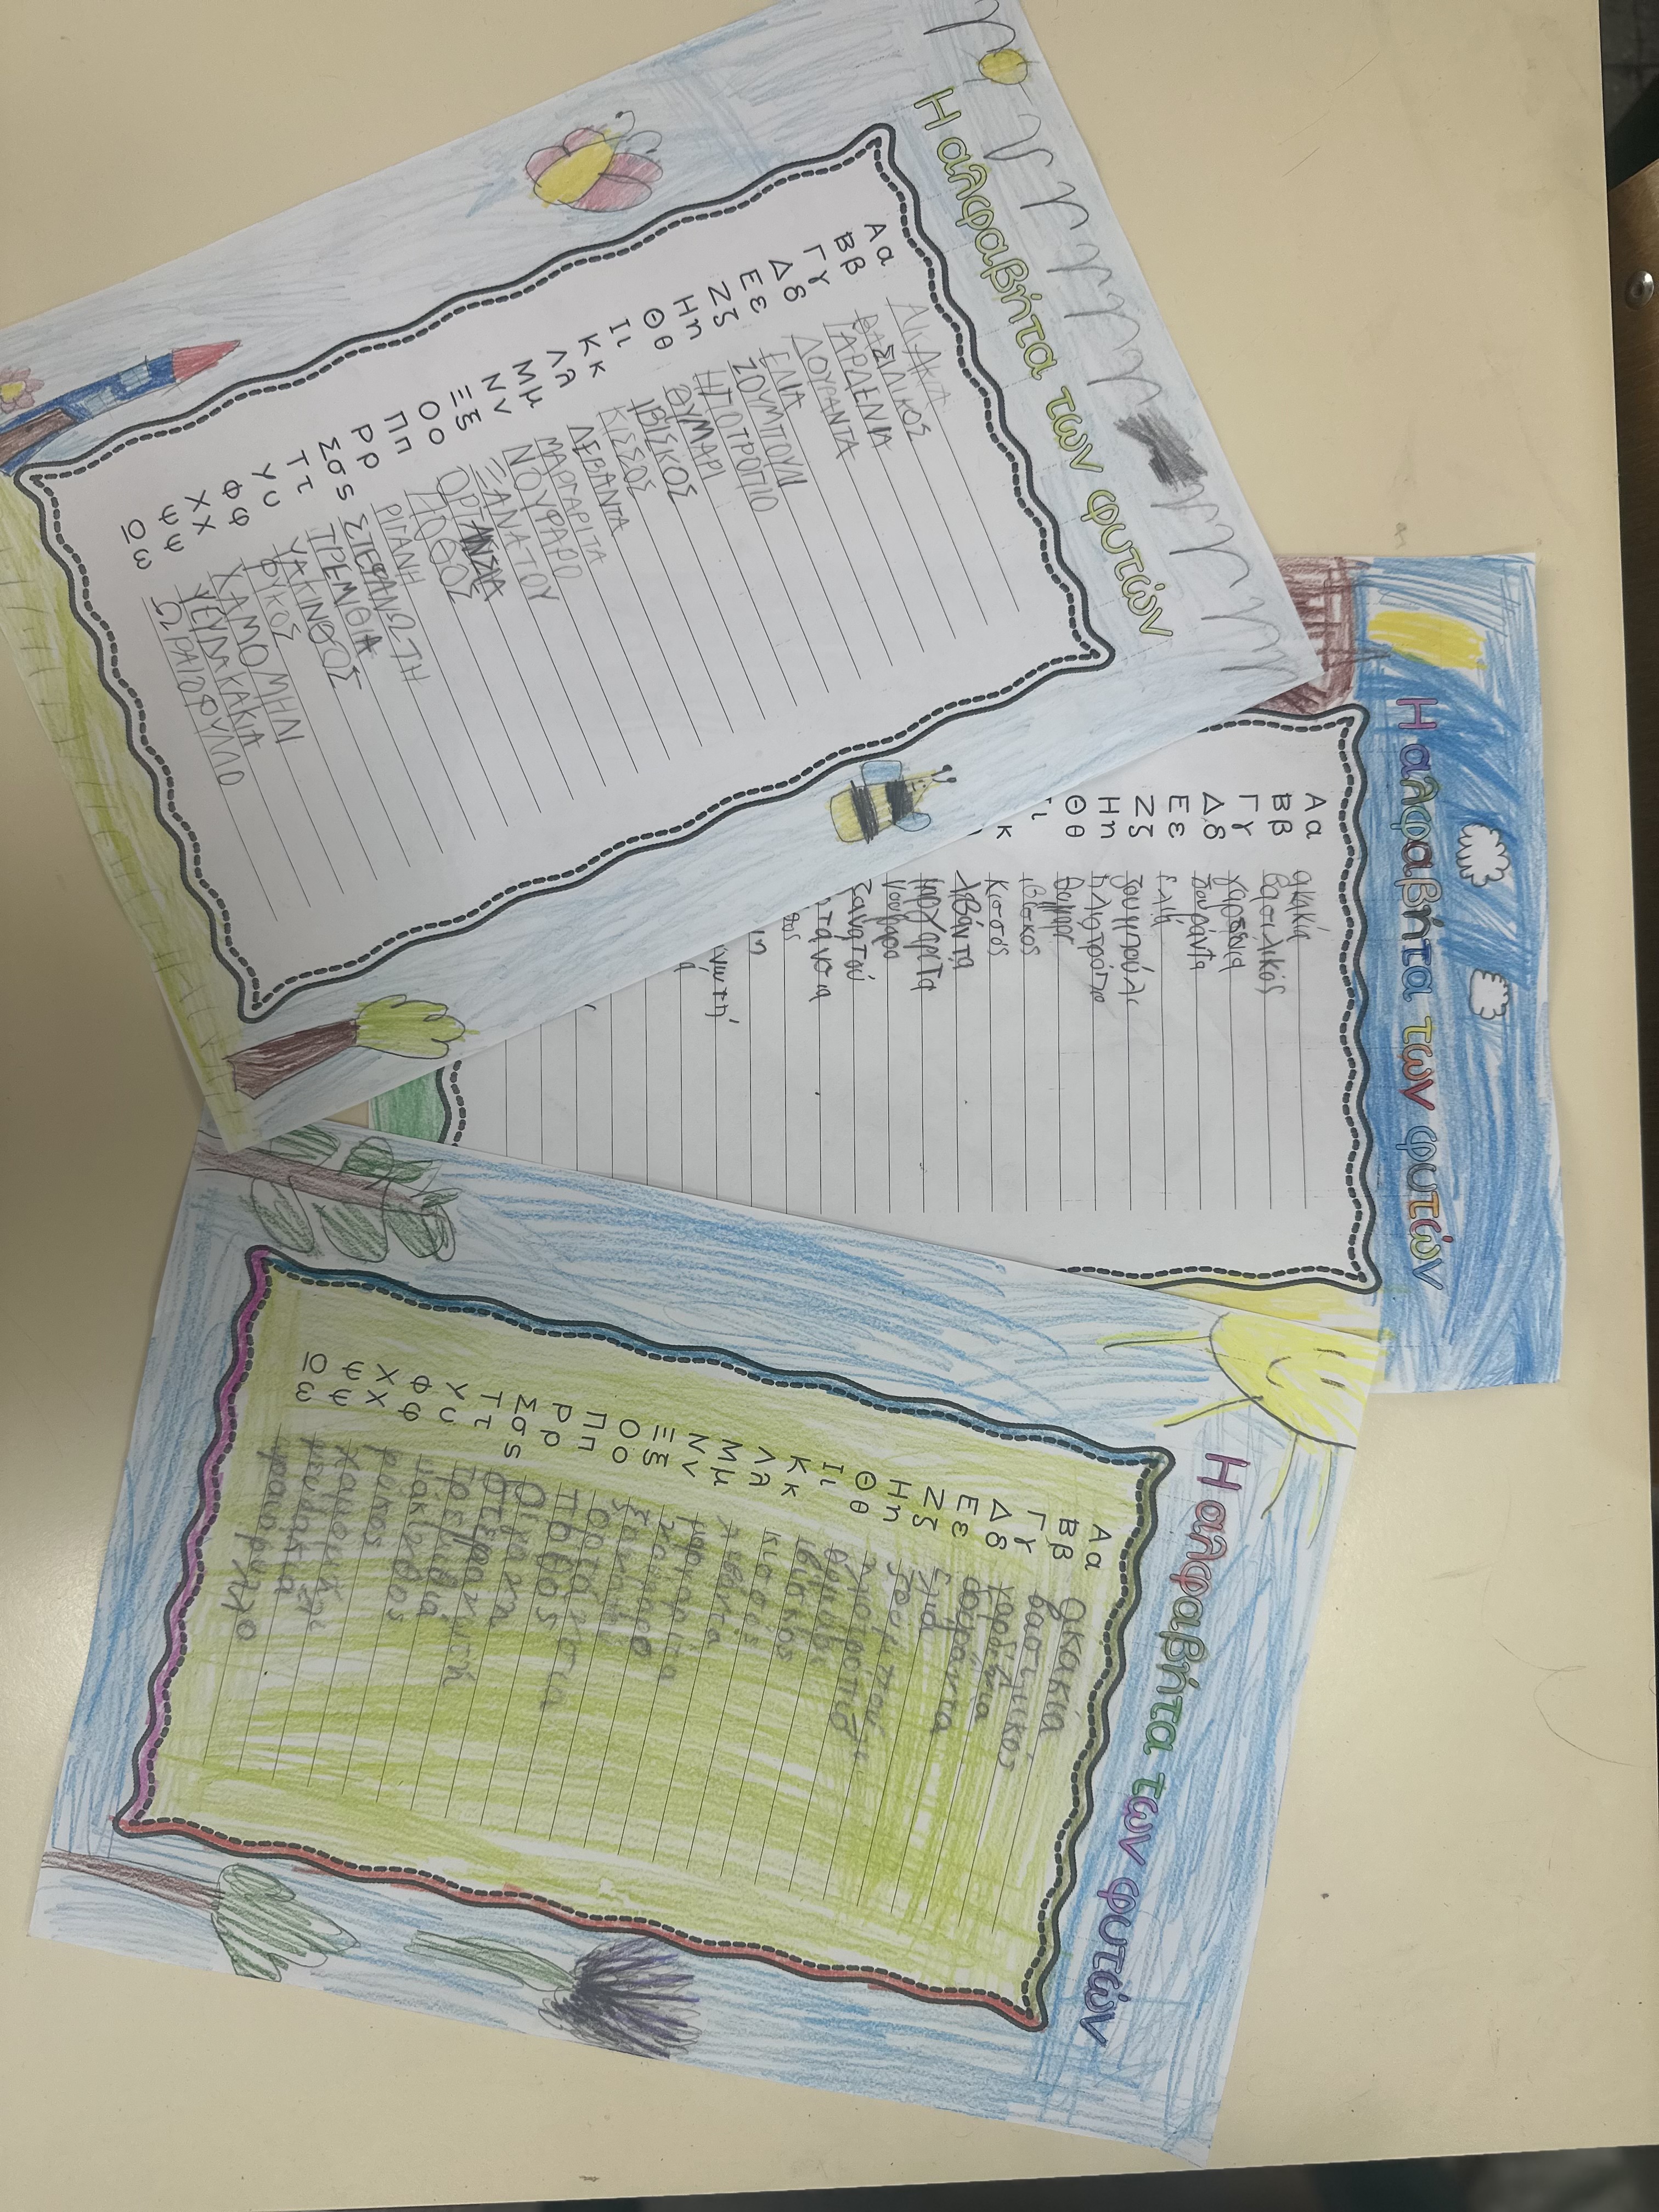 Η αλφαβήτα των φυτών
Αα ΑΚΑΚΙΑ
Ββ ΒΑΣΙΛΙΚΟΣ
Γγ ΓΑΡΔΕΝΙΑ
Δδ ΔΟΥΡΑΝΤΑ
Εε ΕΛΙΑ
Ζζ ΖΟΥΜΠΟΥΛΙ
Ηη ΗΛΙΟΤΡΟΠΙΟ
Θθ ΘΥΜΑΡΙ
Ιι ΙΒΙΣΚΟΣ
Κκ ΚΙΣΣΟΣ
Λλ ΛΕΒΑΝΤΑ
Μμ ΜΑΡΓΑΡΙΤΑ
Νν ΝΟΥΦΑΡΟ
Ξξ ΞΑΝΑΤΟΥ
Οο ΟΡΤΑΝΣΙΑ
Ππ ΠΟΘΟΣ
Ρρ ΡΙΓΑΝΗ
Σσς ΣΤΕΦΑΝΩΤΗ
Ττ ΤΡΕΜΙΘΙΑ
Υυ ΥΑΚΙΝΘΟΣ
Φφ ΦΙΚΟΣ
Χχ ΧΑΜΟΜΗΛΙ
Ψψ ΨΕΥΔΑΚΑΚΙΑ
Ωω ΩΡΑΙΟΦΥΛΛΟ
Η αλφαβήτα των φυτών
Αα ακακία
Ββ βασιλικός
Γγ γαρδένια
Δδ δουράντα
Εε ελιά
Ζζ ζουμπούλι
Ηη ηλιοτρόπιο
Θθ θυμαρι
ιβίσκος
κ κισσός
λεβάντα
μαργαρίτα
νούφαρο
ξανατού
ορτανσια
Η αλφαβήτα των φυτών
Αα ακακία
Ββ βασιλικός
Γγ γαρδένια
Δδ δουραντα
Εε ελιά
Ζζ
Ηη ηλιοτροπιο
Θθ
Ιι ιβισκος
Κκ κισσός
Λλ λεβαντα
Μμ μαργαριτα
Νν νουφαρο
Ξξ
Οο ορτανσια
Ππ ποθος
Ρρ ριγανη
Σσς στεφανωτη
Ττ
Υυ υακινθος
Φφ φικος
Χχ
Ψψ
Ωω ωραιοφυλλο